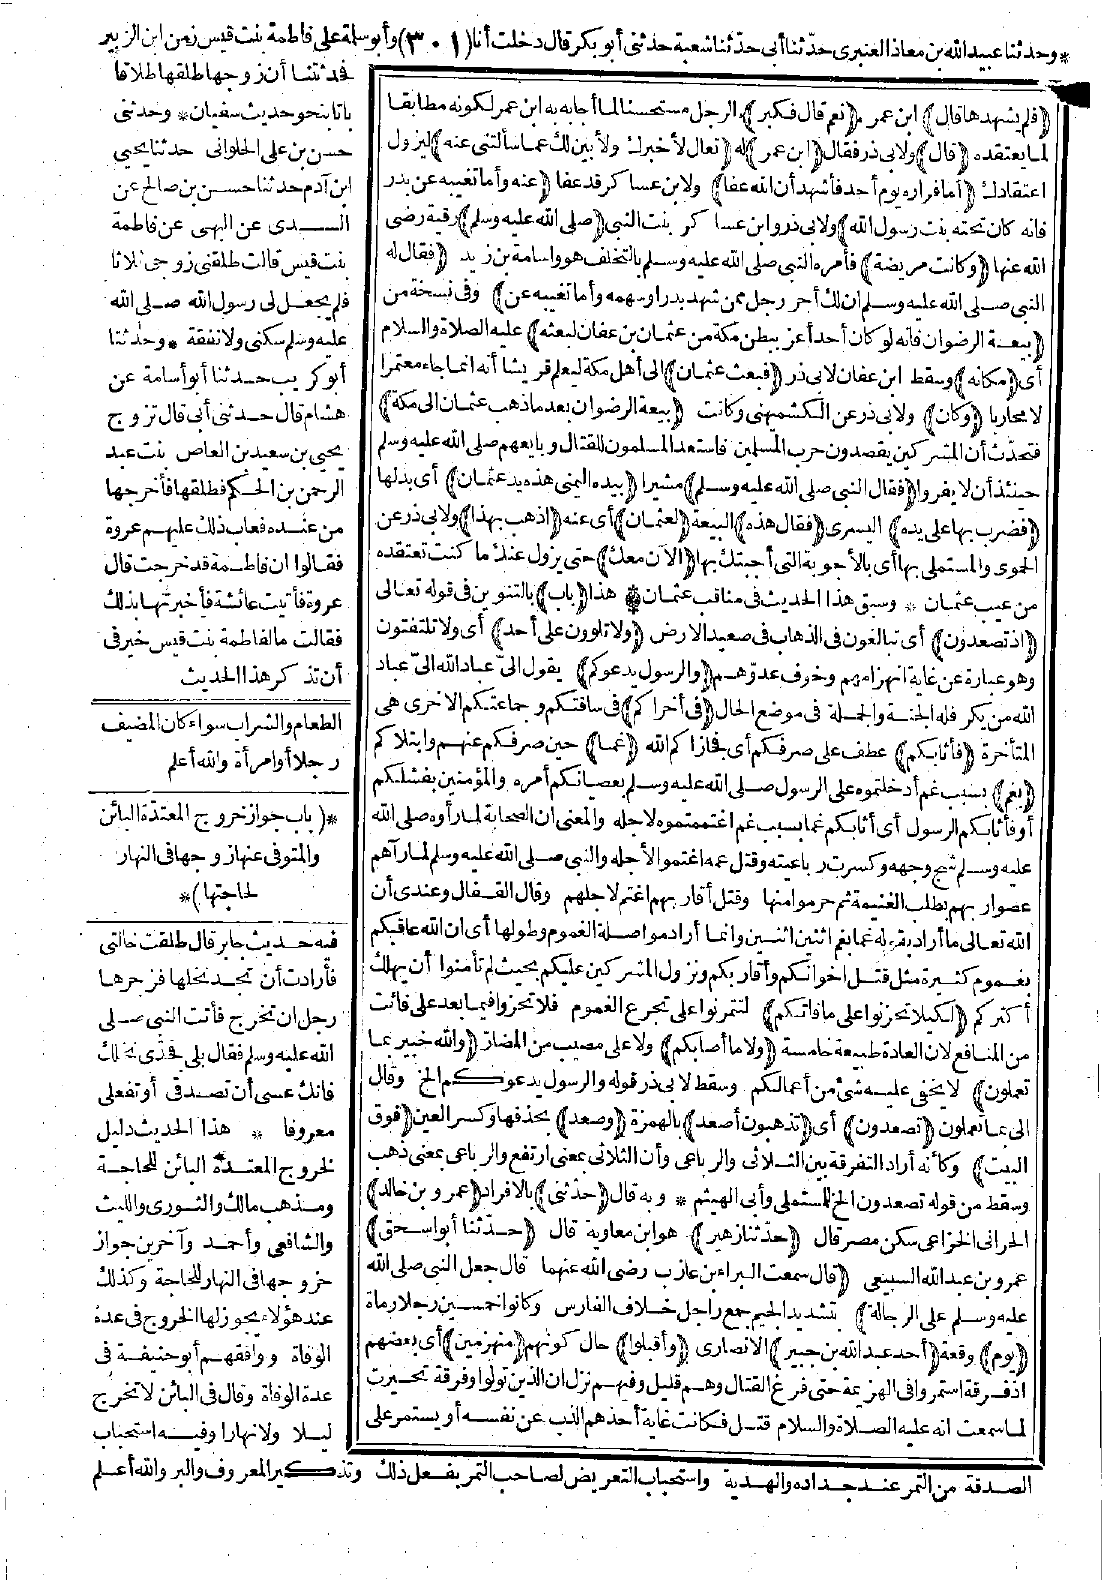 * وحدثنا عبيد الله بن معاذ العنبرى حدثنا أبى حدثنا شعبة حدثنى أبو بكر قال دخلت أنا (٣٠١) وأبو سلمة على فاطمة بنت قيس زمن ابن الزبير
فحدثتنا أن زوجها طلقها طلاقا
باتا بنحو حديث سفيان * وحدثنى
حسن بن على الحلوانى حدثنا يحيى
ابن آدم حدثنا حسن بن صالح عن
السدى عن البهى عن فاطمة
بنت قيس قالت طلقنى زوجى ثلاثا
فلم يجعل لى رسول الله صلى الله
عليه وسلم سكنى ولا نفقة * وحدثنا
أبو كريب حدثنا أبو أسامة عن
هشام قال حدثنى أبى قال تزوج
يحيى بن سعيد بن العاص بنت عبد
الرحمن بن الحكم فطلقها فأخرجها
من عنده فعاب ذلك عليهم عروة
فقالوا ان فاطمة قد خرجت قال
عروة فأتيت عائشة فأخبرتها بذلك
فقالت مالفاطمة بنت قيس خير فى
أن تذكر هذا الحديث
الطعام والشراب سواء كان المضيف
رجلا أو امرأة والله أعلم
*(باب جواز خروج المعتدة البائن
والمتوفى عنها زوجها فى النهار
لحاجتها)*
فيه حديث جابر قال طلقت خالتى
فأرادت أن تجد نخلها فزجرها
رجل ان تخرج فأتت النبى صلى
الله عليه وسلم فقال بلى فجذى نخلك
فانك عسى أن تصدقى أو تفعلى
معروفا * هذا الحديث دليل
لخروج المعتدة البائن للحاجة
ومذهب مالك والثورى والليث
والشافعى وأحمد وآخرين جواز
خروجها فى النهار للحاجة وكذلك
عند هؤلاء يجوز لها الخروج فى عدة
الوفاة ووافقهم أبو حنيفة فى
عدة الوفاة وقال فى البائن لا تخرج
ليلا ولا نهارا وفيه استحباب
(فلم يشهدها قال) ابن عمر (نعم قال فكبر) الرجل مستحسنا لما أجابه به ابن عمر لكونه مطابقا
لما يعتقده (قال) ولابى ذر فقال (ابن عمر) له (تعال لأخبرك ولأبين لك عما سألتنى عنه) ليزول
اعتقادك (أما فراره يوم أحد فأشهد أن الله عفا) ولابن عساكر قد عفا (عنه وأما تغيبه عن بدر
فانه كان تحته بنت رسول الله) ولابى ذر وابن عساكر بنت النبى (صلى الله عليه وسلم) رقية رضى
الله عنها (وكانت مريضة) فأمره النبى صلى الله عليه وسلم بالتخلف هو وأسامة بن زيد (فقال له
النبى صلى الله عليه وسلم ان لك أجر رجل ممن شهد بدرا وسهمه وأما تغيبه عن) وفى نسخة من
(بيعة الرضوان فانه لو كان أحد أعز ببطن مكة من عثمان بن عفان لبعثه) عليه الصلاة والسلام
أى (مكانه) وسقط ابن عفان لابى ذر (فبعث عثمان) الى أهل مكة ليعلم قريشا أنه انما جاء معتمرا
لا محاربا (وكان) ولابى ذر عن الكشميهنى وكانت (بيعة الرضوان بعد ما ذهب عثمان الى مكة)
فتحدث أن المشركين يقصدون حرب المسلمين فاستعد المسلمون للقتال وبايعهم صلى الله عليه وسلم
حينئذ أن لا يفروا (فقال النبى صلى الله عليه وسلم) مشيرا (بيده اليمنى هذه يد عثمان) أى بدلها
(فضرب بها على يده) اليسرى (فقال هذه) البيعة (لعثمان) أى عنه (اذهب بهذا) ولابى ذر عن
الحموى والمستملى بها أى بالأجوبة التى أجبتك بها (الآن معك) حتى يزول عنك ما كنت تعتقده
من عيب عثمان * وسبق هذا الحديث فى مناقب عثمان * هذا (باب) بالتنوين فى قوله تعالى
(اذ تصعدون) أى تبالغون فى الذهاب فى صعيد الارض (ولا تلوون على أحد) أى ولا تلتفتون
وهو عبارة عن غاية انهزامهم وخوف عدوهم (والرسول يدعوكم) يقول الىّ عباد الله الىّ عباد
الله من يكر فله الجنة والجملة فى موضع الحال (فى أخراكم) فى ساقتكم وجماعتكم الاخرى هى
المتأخرة (فأثابكم) عطف على صرفكم أى فجازاكم الله (غما) حين صرفكم عنهم وابتلاكم
(بغم) بسبب غم أدخلتموه على الرسول صلى الله عليه وسلم بعصيانكم أمره والمؤمنين بفشلكم
أو فأثابكم الرسول أى أثابكم غما بسبب غم اغتممتموه لاجله والمعنى ان الصحابة لما رأوه صلى الله
عليه وسلم شج وجهه وكسرت رباعيته وقتل عمه اغتموا لأجله والنبى صلى الله عليه وسلم لما رآهم
عصوا ربهم بطلب الغنيمة ثم حرموا منها وقتل أقاربهم اغتم لاجلهم وقال القفال وعندى أن
الله تعالى ما أراد بقوله غما بغم اثنين اثنين وانما أراد مواصلة الغموم وطولها أى ان الله عاقبكم
بغموم كثيرة مثل قتل اخوانكم وأقاربكم ونزول المشركين عليكم بحيث لم تأمنوا أن يهلك
أكثركم (لكيلا تحزنوا على ما فاتكم) لتتمرنوا على تجرع الغموم فلا تحزنوا فيما بعد على فائت
من المنافع لان العادة طبيعة خامسة (ولا ما أصابكم) ولا على مصيب من المضار (والله خبير بما
تعملون) لا يخفى عليه شئ من أعمالكم وسقط لابى ذر قوله والرسول يدعوكم الخ وقال
الى بما تعملون (تصعدون) أى (تذهبون أصعد) بالهمزة (وصعد) بحذفها وكسر العين (فوق
البيت) وكأنه أراد التفرقة بين الثلاثى والرباعى وأن الثلاثى بمعنى ارتفع والرباعى بمعنى ذهب
وسقط من قوله تصعدون الخ للمستملى وأبى الهيثم * وبه قال (حدثنى) بالافراد (عمرو بن خالد)
الحرانى الخزاعى سكن مصر قال (حدثنا زهير) هو ابن معاوية قال (حدثنا أبو اسحق)
عمرو بن عبد الله السبيعى (قال سمعت البراء بن عازب رضى الله عنهما قال جعل النبى صلى الله
عليه وسلم على الرجالة) بتشديد الجيم جمع راجل خلاف الفارس وكانوا خمسين رجلا رماة
(يوم) وقعة (أحد عبد الله بن جبير) الانصارى (وأقبلوا) حال كونهم (منهزمين) أى بعضهم
اذ فرقة استمروا فى الهزيمة حتى فرغ القتال وهم قليل وفيهم نزل ان الذين تولوا وفرقة تحيرت
لما سمعت انه عليه الصلاة والسلام قتل فكانت غاية أحدهم الذب عن نفسه أو يستمر على
الصدقة من التمر عند جداده والهدية واستحباب التعريض لصاحب التمر بفعل ذلك وتذكير المعروف والبر والله أعلم